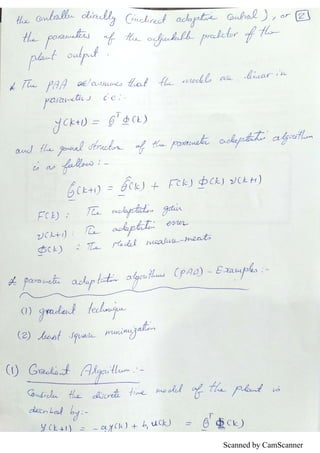 the controller directly (indirect adaptive control), or [2]
the parameters of the adjustable predictor of the
plant output.
* The PAA assumes that the models are linear in
parameters i.e:-
y(k+1) = θᵀ Φ(k)
and the general structure of the parameter adaptation algorithm
is as follows:-
θ̂(k+1) = θ̂(k) + F(k) Φ(k) ν(k+1)
F(k) : The adaptation gain
ν(k+1) : The adaptation error
Φ(k) : The Model measurements
* parameter adaptation algorithms (PAA) - Examples:-
(1) gradient technique
(2) least square minimization
(1) Gradient Algorithm:-
Consider the discrete time model of the plant is
described by:-
y(k+1) = -a y(k) + b, u(k) = θᵀ Φ(k)
Scanned by CamScanner